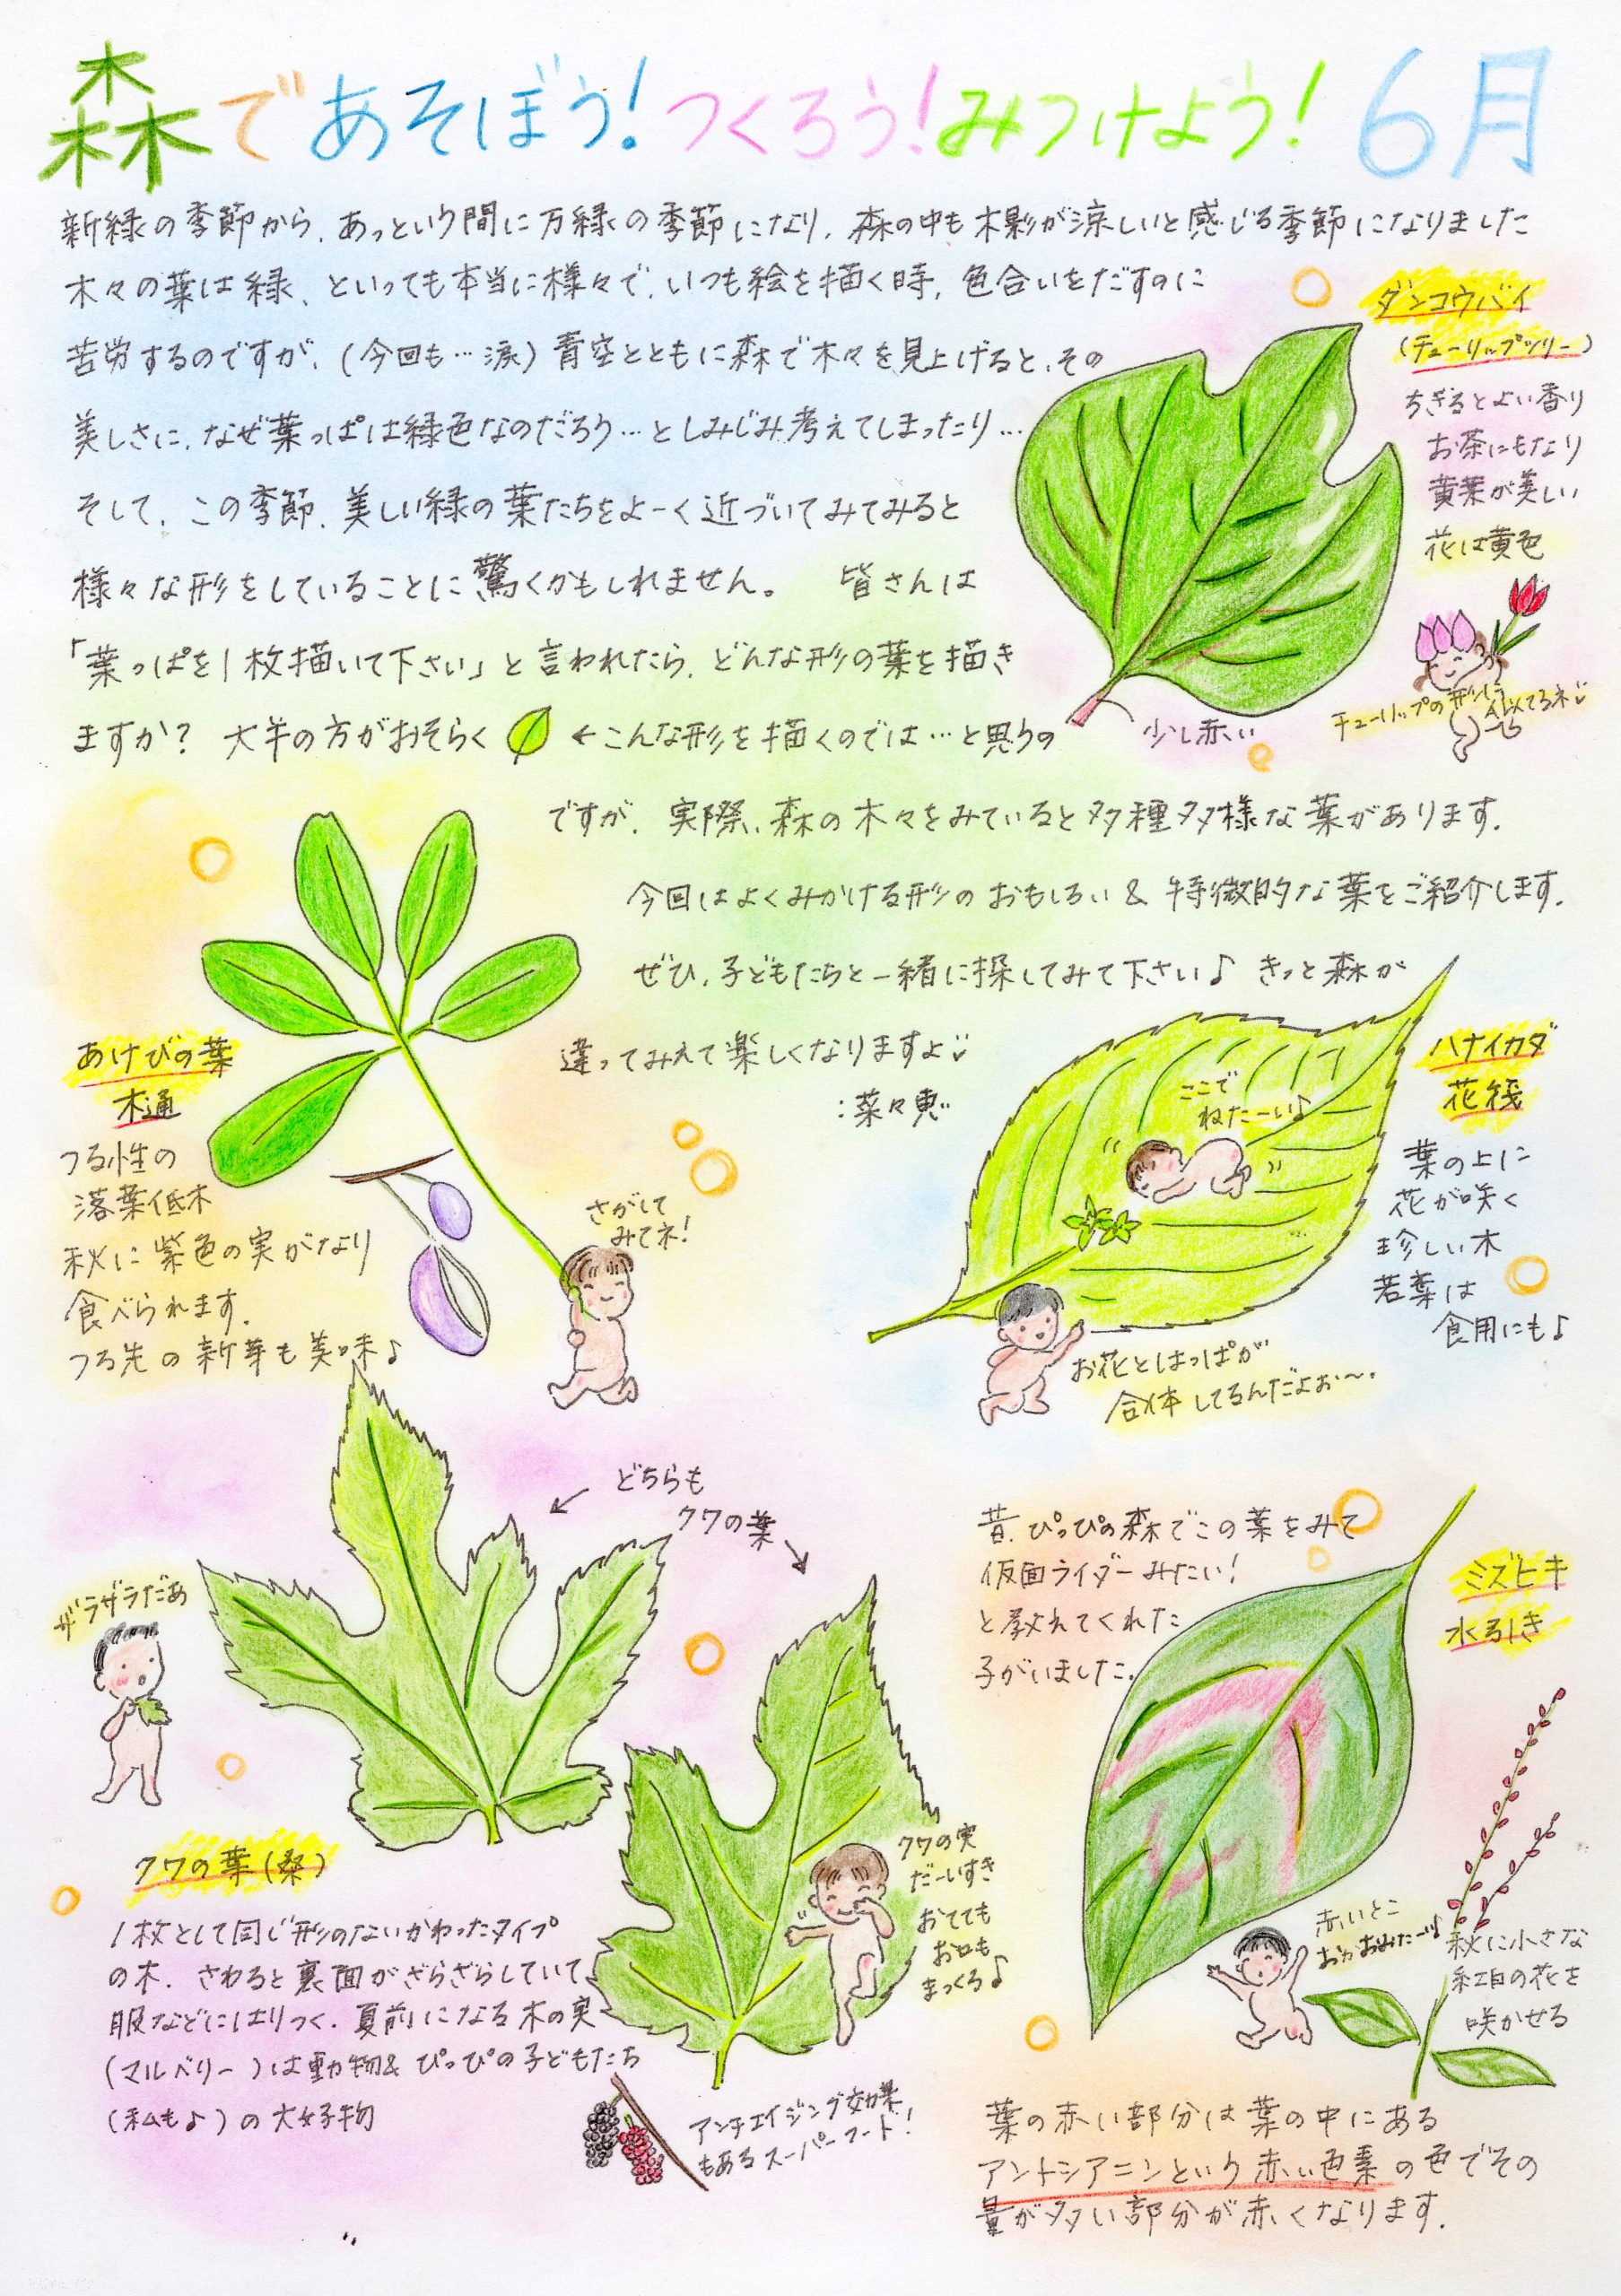 森であそぼう!つくろう!みつけよう! 6月
新緑の季節から、あっという間に万緑の季節になり、森の中も木影が涼しいと感じる季節になりました
木々の葉は緑、といっても本当に様々で、いつも絵を描く時、色合いをだすのに
苦労するのですが、(今回も…涙)青空とともに森で木々を見上げると、その
美しさに、なぜ葉っぱは緑色なのだろう…としみじみ考えてしまったり…
そして、この季節、美しい緑の葉たちをよーく近づいてみてみると
様々な形をしていることに驚くかもしれません。 皆さんは
「葉っぱを1枚描いて下さい」と言われたら、どんな形の葉を描き
ますか? 大半の方がおそらく ←こんな形を描くのでは…と思うの
ですが、実際、森の木々をみていると多種多様な葉があります。
今回はよくみかける形のおもしろい&特徴的な葉をご紹介します。
ぜひ、子どもたちと一緒に探してみて下さい♪ きっと森が
違ってみえて楽しくなりますよ
:菜々恵
ダンコウバイ
(チューリップツリー)
ちぎるとよい香り
お茶にもなり
黄葉が美しい
花は黄色
チューリップの形に
似てるネ
少し赤い
あけびの葉
木通
つる性の
落葉低木
秋に紫色の実がなり
食べられます。
つる先の新芽も美味♪
さがして
みてネ!
ハナイカダ
花筏
葉の上に
花が咲く
珍しい木
若葉は
食用にも♪
ここで
ねたーい♪
お花とはっぱが
合体してるんだよお〜。
どちらも
クワの葉
ザラザラだあ
クワの葉(桑)
1枚として同じ形のないかわったタイプ
の木。さわると裏面がざらざらしていて
服などにはりつく。夏前になる木の実
(マルベリー)は動物&ぴっぴの子どもたち
(私も♪)の大好物
クワの実
だーいすき
おてても
お口も
まっくろ♪
アンチエイジング効果
もあるスーパーフード!
昔、ぴっぴの森でこの葉をみて
仮面ライダーみたい!
と教えてくれた
子がいました。
ミズヒキ
水引き
赤いとこ
おかおみたーい♪
秋に小さな
紅白の花を
咲かせる
葉の赤い部分は葉の中にある
アントシアニンという赤い色素の色でその
量が多い部分が赤くなります。